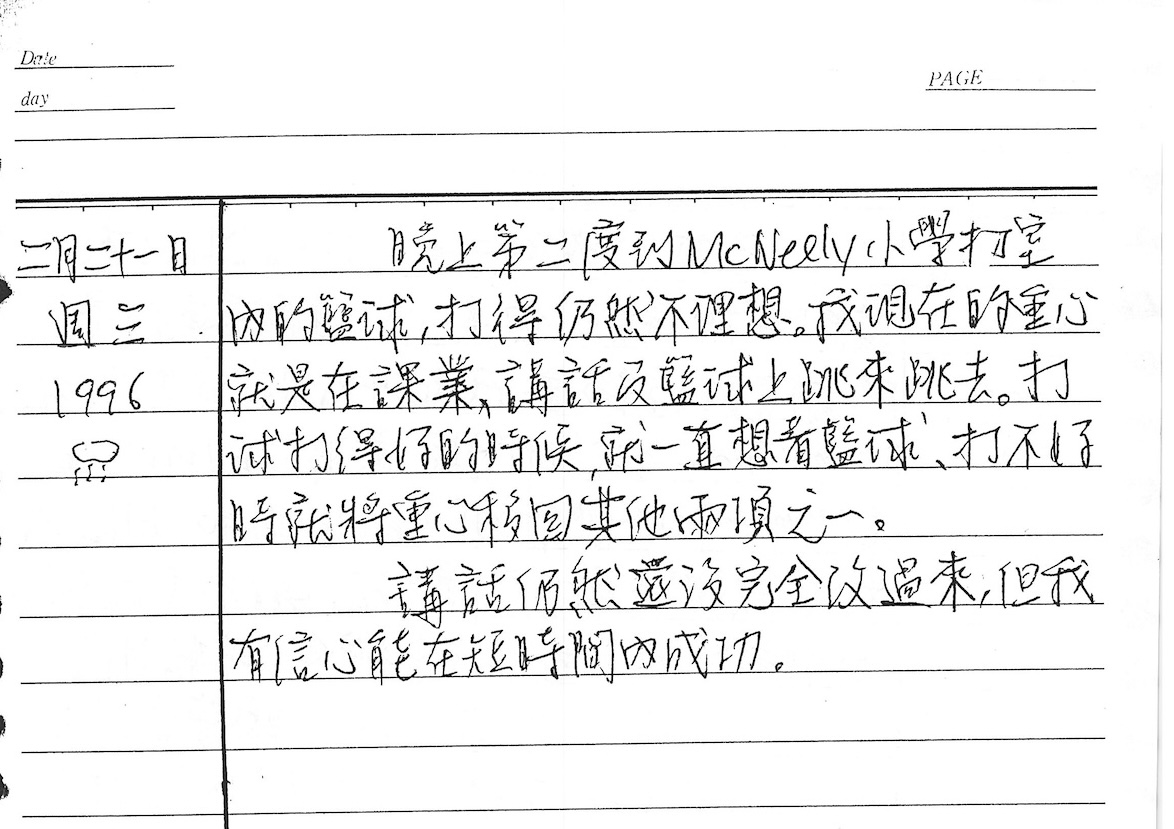 Date
day
PAGE
二月二十一日
週三
1996
晚上第二度到McNeely小學打室
內的籃球,打得仍然不理想。我現在的重心
就是在課業、講話及籃球上跳來跳去。打
球打得好的時候,就一直想着籃球、打不好
時就將重心移回其他兩項之一。
講話仍然還沒完全改過來,但我
有信心能在短時間內成功。